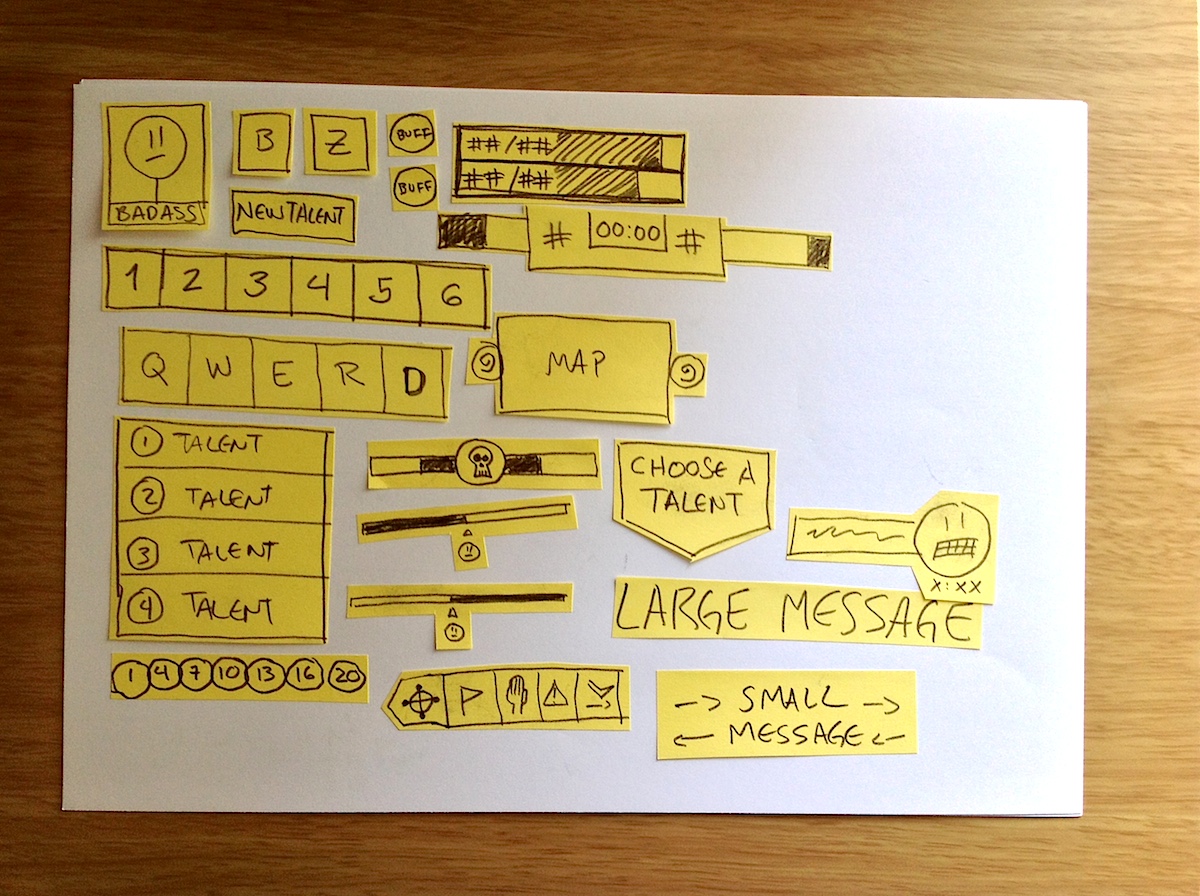 BADASS
B
Z
BUFF
BUFF
NEW TALENT
##/##
##/##
# 00:00 #
1 2 3 4 5 6
Q W E R D
MAP
1 TALENT
2 TALENT
3 TALENT
4 TALENT
CHOOSE A
TALENT
X:XX
LARGE MESSAGE
1 4 7 10 13 16 20
→ SMALL →
← MESSAGE ←